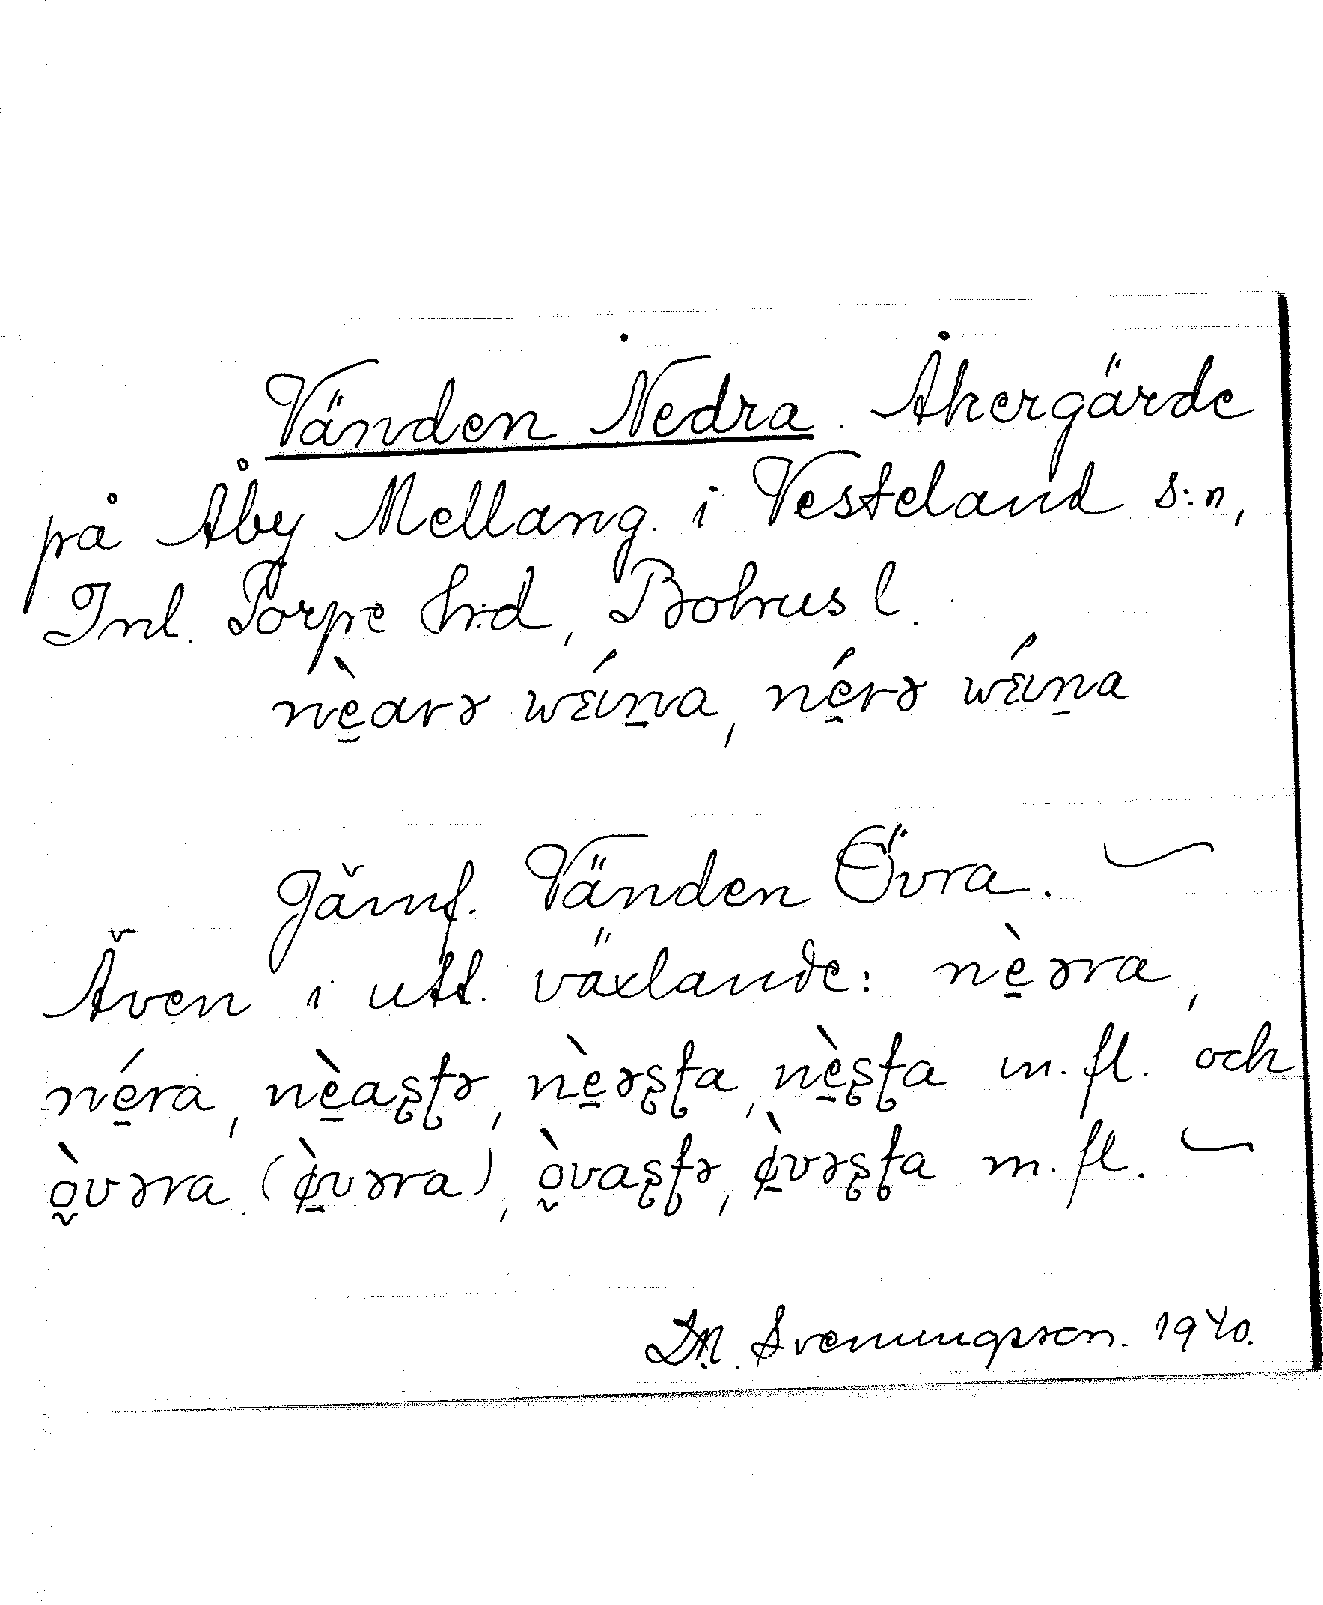 Vänden Nedra. Åkergärde
på Åby Mellang. i Vesteland s:n,
Inl. Torpe hrd, Bohus l.
nè̱arə wɛ́ıṉa, né̱rə wɛ́ıṉa
Jämf. Vänden Övra. ~
Även i utt. växlande: nè̱ərra,
né̱ra, nè̱aʂʈə, nè̱əʂʈa, nè̱ʂʈa m. fl. och
ò̰vərra (ø̱̀vərra), ò̰vaʂʈə, ø̱̀vəʂʈa m. fl. ~
D.N. Svenungsson. 1940.